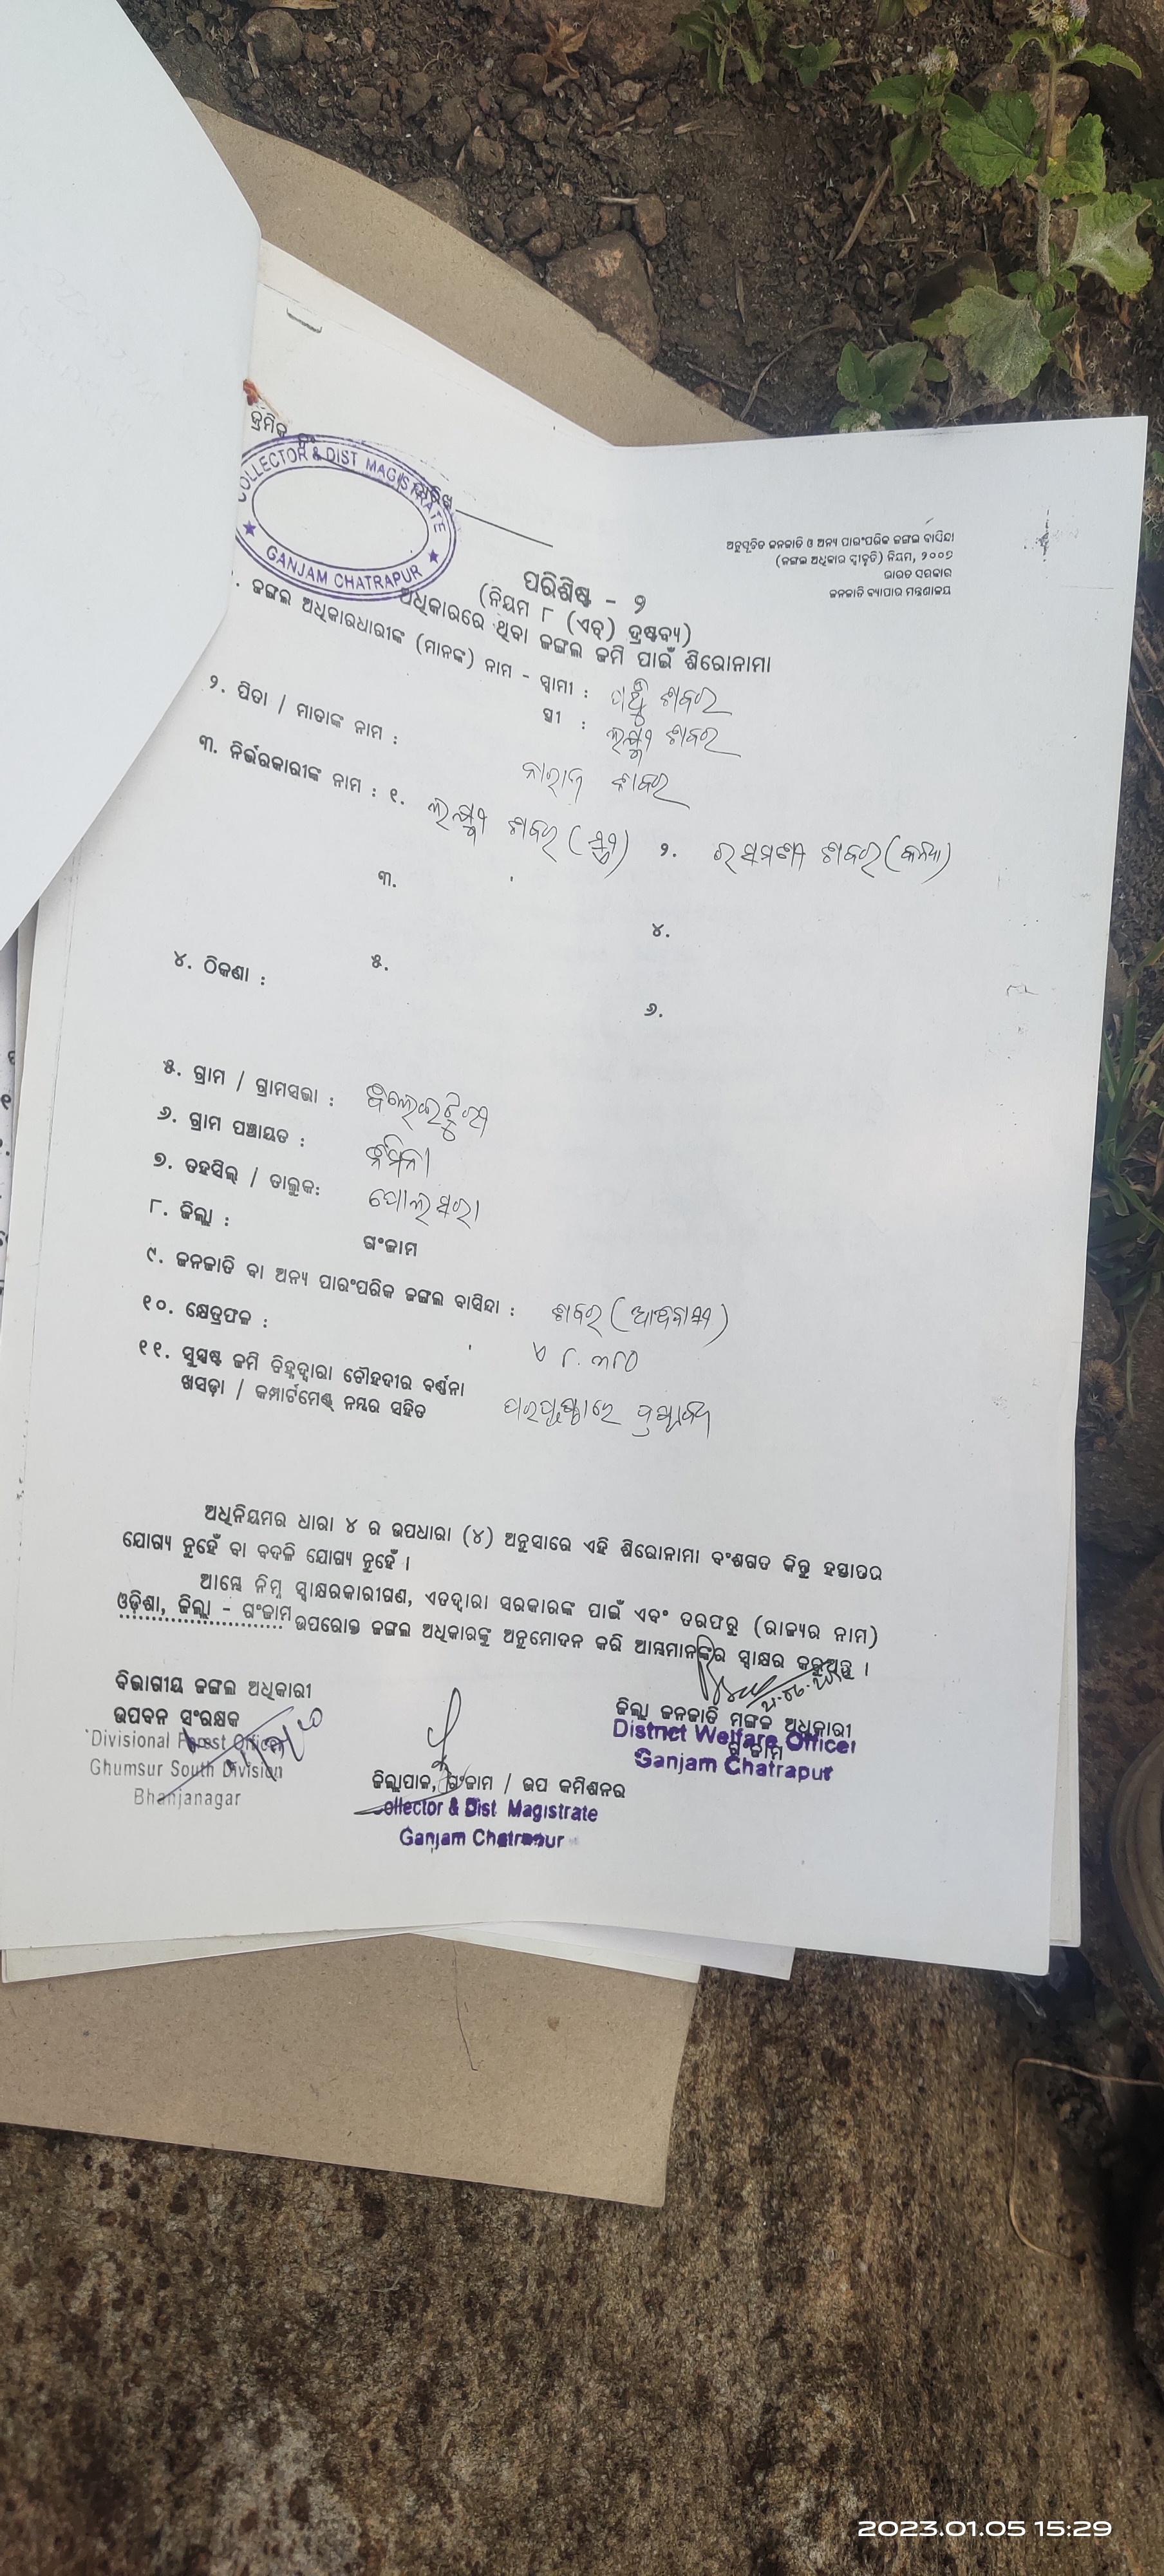 କ୍ରମିକ ନଂ
COLLECTOR & DIST MAGISTRATE
GANJAM CHATRAPUR
ତାରିଖ
ଅନୁସୂଚିତ ଜନଜାତି ଓ ଅନ୍ୟ ପାରଂପରିକ ଜଙ୍ଗଲ ବାସିନ୍ଦା
(ଜଙ୍ଗଲ ଅଧିକାର ସ୍ୱୀକୃତି) ନିୟମ, ୨୦୦୭
ଭାରତ ସରକାର
ଜନଜାତି ବ୍ୟାପାର ମନ୍ତ୍ରଣାଳୟ
ପରିଶିଷ୍ଟ - ୨
(ନିୟମ ୮ (ଏଚ୍) ଦ୍ରଷ୍ଟବ୍ୟ)
ଅଧିକାରରେ ଥିବା ଜଙ୍ଗଲ ଜମି ପାଇଁ ଶିରୋନାମା
. ଜଙ୍ଗଲ ଅଧିକାରଧାରୀଙ୍କ (ମାନଙ୍କ) ନାମ - ସ୍ୱାମୀ : ଶବର
ସ୍ତ୍ରୀ : ଲକ୍ଷ୍ମୀ ଶବର
୨. ପିତା / ମାତାଙ୍କ ନାମ : ଶବର
୩. ନିର୍ଭରକାରୀଙ୍କ ନାମ : ୧. ଲକ୍ଷ୍ମୀ ଶବର (ସ୍ତ୍ରୀ) ୨. ଶବର (କନ୍ୟା)
୩.
୪.
୪. ଠିକଣା : ୫.
୬.
୫. ଗ୍ରାମ / ଗ୍ରାମସଭା :
୬. ଗ୍ରାମ ପଞ୍ଚାୟତ :
୭. ତହସିଲ୍ / ତାଲୁକ: ପୋଲସରା
୮. ଜିଲ୍ଲା : ଗଂଜାମ
୯. ଜନଜାତି ବା ଅନ୍ୟ ପାରଂପରିକ ଜଙ୍ଗଲ ବାସିନ୍ଦା : ଶବର (ଆଦିବାସୀ)
୧୦. କ୍ଷେତ୍ରଫଳ : ଏ ୮.୩୮୦
୧୧. ସୁସ୍ପଷ୍ଟ ଜମି ଚିହ୍ନଦ୍ୱାରା ଚୌହଦୀର ବର୍ଣ୍ଣନା
ଖସଡ଼ା / କମ୍ପାର୍ଟମେଣ୍ଟ୍ ନମ୍ବର ସହିତ ପରପୃଷ୍ଠାରେ ଦ୍ରଷ୍ଟବ୍ୟ
ଅଧିନିୟମର ଧାରା ୪ ର ଉପଧାରା (୪) ଅନୁସାରେ ଏହି ଶିରୋନାମା ବଂଶଗତ କିନ୍ତୁ ହସ୍ତାନ୍ତର
ଯୋଗ୍ୟ ନୁହେଁ ବା ବଦଳି ଯୋଗ୍ୟ ନୁହେଁ ।
ଆମ୍ଭେ ନିମ୍ନ ସ୍ୱାକ୍ଷରକାରୀଗଣ, ଏତଦ୍ୱାରା ସରକାରଙ୍କ ପାଇଁ ଏବଂ ତରଫରୁ (ରାଜ୍ୟର ନାମ)
ଓଡ଼ିଶା, ଜିଲ୍ଲା - ଗଂଜାମ ଉପରୋକ୍ତ ଜଙ୍ଗଲ ଅଧିକାରଙ୍କୁ ଅନୁମୋଦନ କରି ଆମ୍ଭମାନଙ୍କର ସ୍ୱାକ୍ଷର କରୁଅଛୁ ।
ବିଭାଗୀୟ ଜଙ୍ଗଲ ଅଧିକାରୀ
ଉପବନ ସଂରକ୍ଷକ
Divisional Forest Officer
Ghumsur South Division
Bhanjanagar
ଜିଲ୍ଲାପାଳ, ଗଂଜାମ / ଉପ କମିଶନର
Collector & Dist Magistrate
Ganjam Chatrapur
ଜିଲ୍ଲା ଜନଜାତି ମଙ୍ଗଳ ଅଧିକାରୀ
ଗଂଜାମ
District Welfare Officer
Ganjam Chatrapur
2023.01.05 15:29